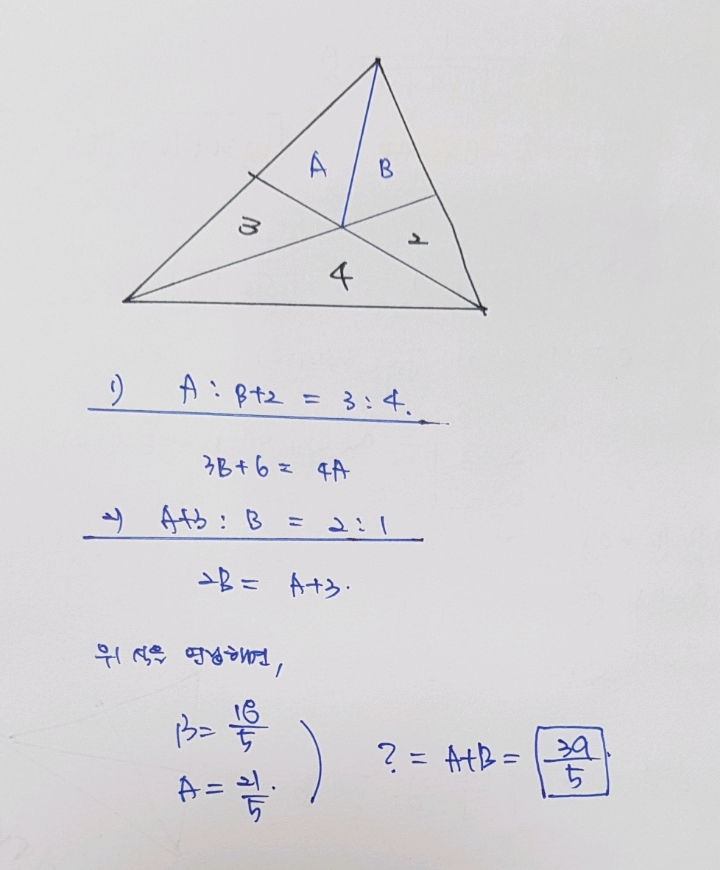 A B
3 2
4
1) A : B+2 = 3 : 4.
3B+6 = 4A
2) A+3 : B = 2 : 1
2B = A+3.
위 식을 연립하면,
B= 18/5
A = 21/5. ) ? = A+B = 39/5.